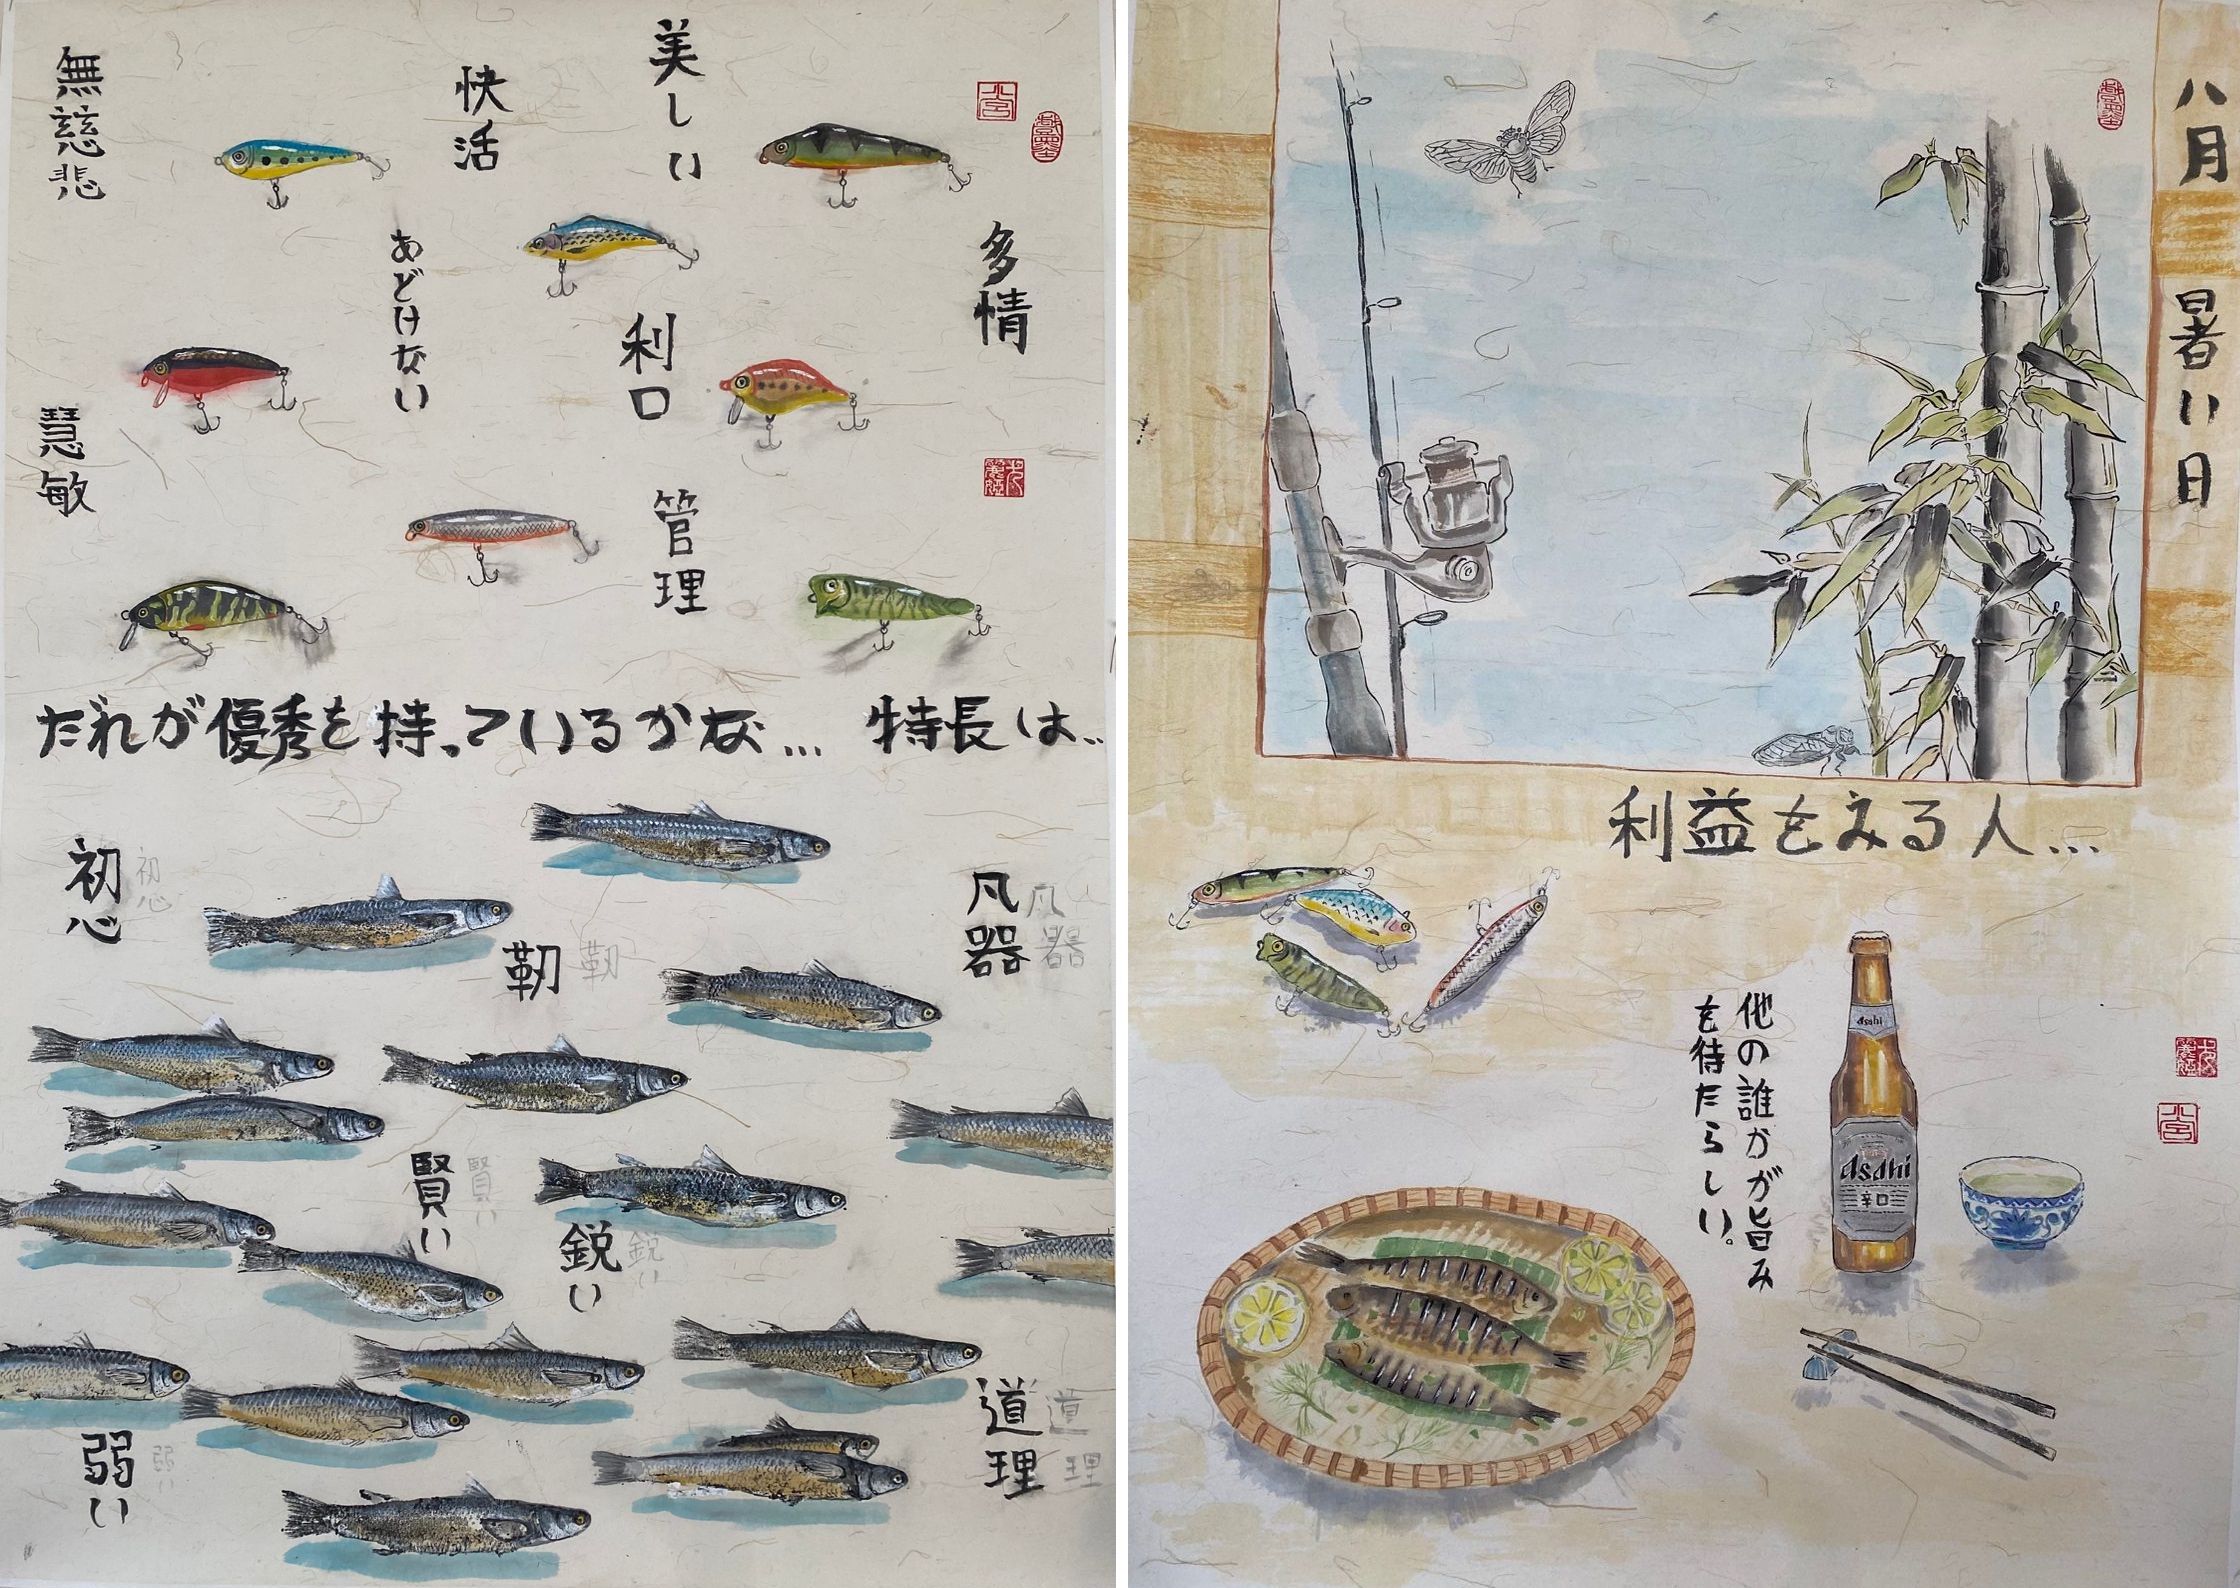 美しい
快活
無慈悲
多情
あどけない
利口
慧敏
管理
だれが優秀を持っているかな… 特長は..
初心
初心
凡器
凡器
靭
靭
賢い
賢い
鋭い
鋭い
道理
道理
弱い
弱い
八月 暑い日
利益をみる人…
他の誰かが旨み
を待たらしい。
Asahi
Asahi
辛口